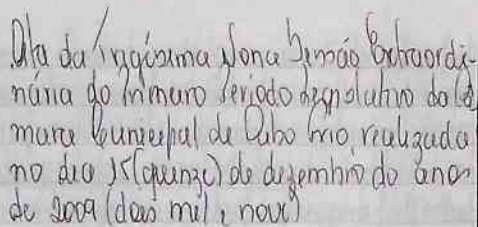 Ata da Trigésima Nona Sessão Extraordi-
nária do Primeiro Período Legislativo da Câ
mara Municipal de Cabo Frio, realizada
no dia 15 (quinze) de dezembro do ano
de 2009 (dois mil e nove)